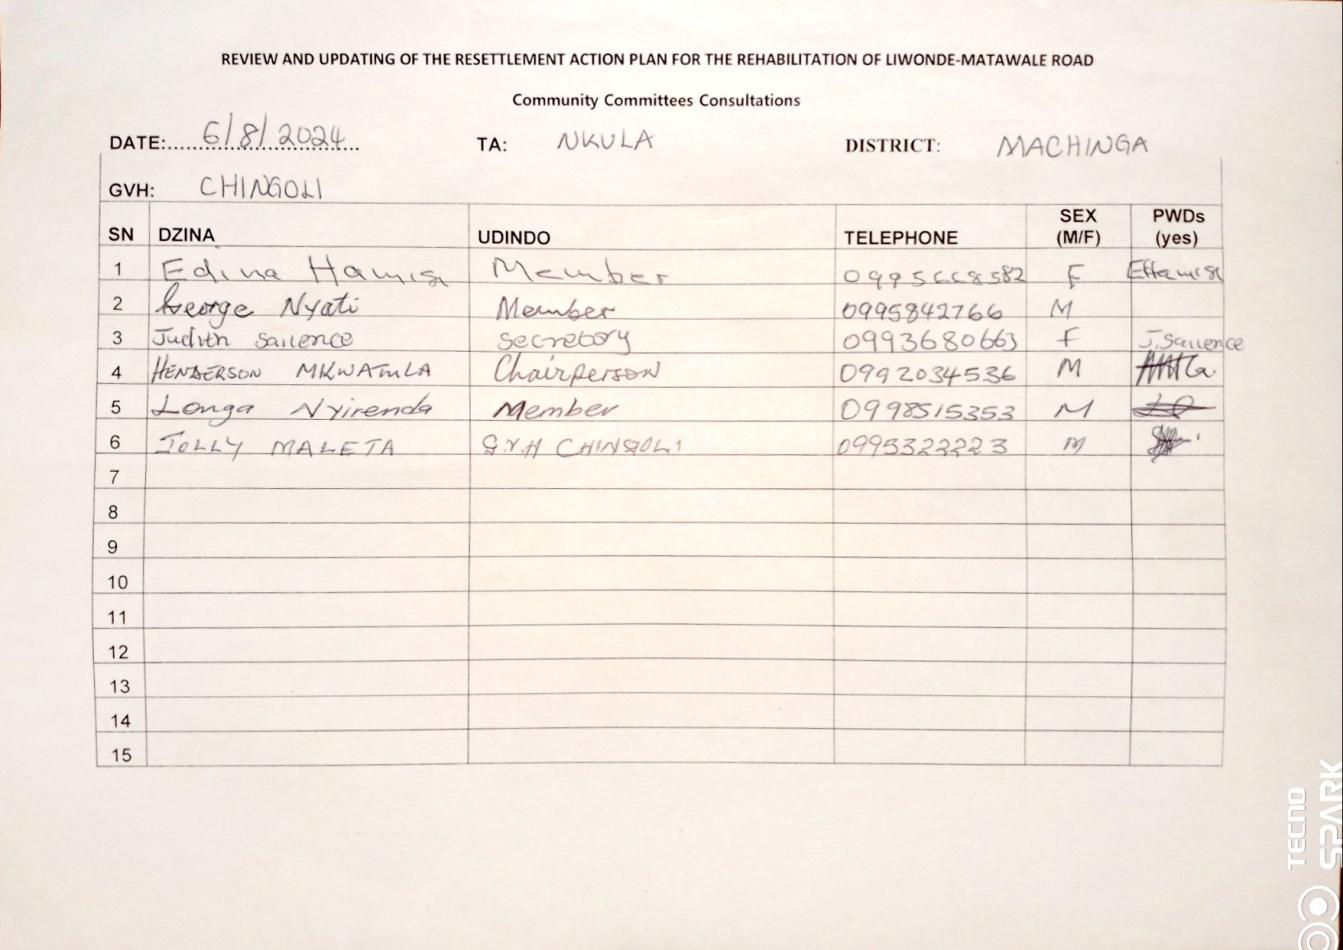 REVIEW AND UPDATING OF THE RESETTLEMENT ACTION PLAN FOR THE REHABILITATION OF LIWONDE-MATAWALE ROAD
Community Committees Consultations
DATE:......6/8/2024... TA: NKULA DISTRICT: MACHINGA
GVH: CHINGOLI
SN DZINA UDINDO TELEPHONE SEX (M/F) PWDs (yes)
1 Edina Hamisi Member 0995668582 F EHamisi
2 George Nyati Member 0995842766 M
3 Judith Sailence Secretory 0993680663 F J.Sailence
4 HENDERSON MKWATULA Chairperson 0992034536 M
5 Longa Nyirenda Member 0998515353 M
6 JOLLY MALETA G.V.H CHINGOLI 0995322223 M
7
8
9
10
11
12
13
14
15
TECNO
SPARK